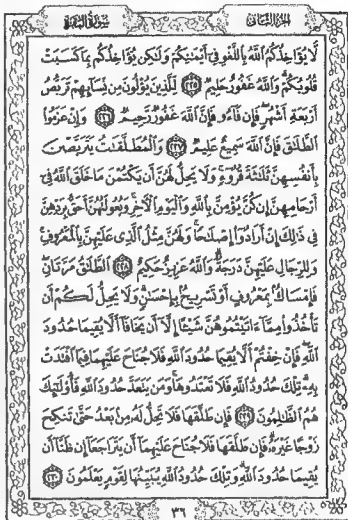 الجزء الثاني سورة البقرة
لَّا يُؤَاخِذُكُمُ اللَّهُ بِاللَّغْوِ فِي أَيْمَانِكُمْ وَلَٰكِن يُؤَاخِذُكُم بِمَا كَسَبَتْ
قُلُوبُكُمْ وَاللَّهُ غَفُورٌ حَلِيمٌ ٢٢٥ لِّلَّذِينَ يُؤْلُونَ مِن نِّسَائِهِمْ تَرَبُّصُ
أَرْبَعَةِ أَشْهُرٍ فَإِن فَاءُو فَإِنَّ اللَّهَ غَفُورٌ رَّحِيمٌ ٢٢٦ وَإِنْ عَزَمُوا
الطَّلَاقَ فَإِنَّ اللَّهَ سَمِيعٌ عَلِيمٌ ٢٢٧ وَالْمُطَلَّقَاتُ يَتَرَبَّصْنَ
بِأَنفُسِهِنَّ ثَلَاثَةَ قُرُوءٍ وَلَا يَحِلُّ لَهُنَّ أَن يَكْتُمْنَ مَا خَلَقَ اللَّهُ فِي
أَرْحَامِهِنَّ إِن كُنَّ يُؤْمِنَّ بِاللَّهِ وَالْيَوْمِ الْآخِرِ وَبُعُولَتُهُنَّ أَحَقُّ بِرَدِّهِنَّ
فِي ذَٰلِكَ إِنْ أَرَادُوا إِصْلَاحًا وَلَهُنَّ مِثْلُ الَّذِي عَلَيْهِنَّ بِالْمَعْرُوفِ
وَلِلرِّجَالِ عَلَيْهِنَّ دَرَجَةٌ وَاللَّهُ عَزِيزٌ حَكِيمٌ ٢٢٨ الطَّلَاقُ مَرَّتَانِ
فَإِمْسَاكٌ بِمَعْرُوفٍ أَوْ تَسْرِيحٌ بِإِحْسَانٍ وَلَا يَحِلُّ لَكُمْ أَن
تَأْخُذُوا مِمَّا آتَيْتُمُوهُنَّ شَيْئًا إِلَّا أَن يَخَافَا أَلَّا يُقِيمَا حُدُودَ
اللَّهِ فَإِنْ خِفْتُمْ أَلَّا يُقِيمَا حُدُودَ اللَّهِ فَلَا جُنَاحَ عَلَيْهِمَا فِيمَا افْتَدَتْ
بِهِ تِلْكَ حُدُودُ اللَّهِ فَلَا تَعْتَدُوهَا وَمَن يَتَعَدَّ حُدُودَ اللَّهِ فَأُولَٰئِكَ
هُمُ الظَّالِمُونَ ٢٢٩ فَإِن طَلَّقَهَا فَلَا تَحِلُّ لَهُ مِن بَعْدُ حَتَّىٰ تَنكِحَ
زَوْجًا غَيْرَهُ فَإِن طَلَّقَهَا فَلَا جُنَاحَ عَلَيْهِمَا أَن يَتَرَاجَعَا إِن ظَنَّا أَن
يُقِيمَا حُدُودَ اللَّهِ وَتِلْكَ حُدُودُ اللَّهِ يُبَيِّنُهَا لِقَوْمٍ يَعْلَمُونَ ٢٣٠
٣٦